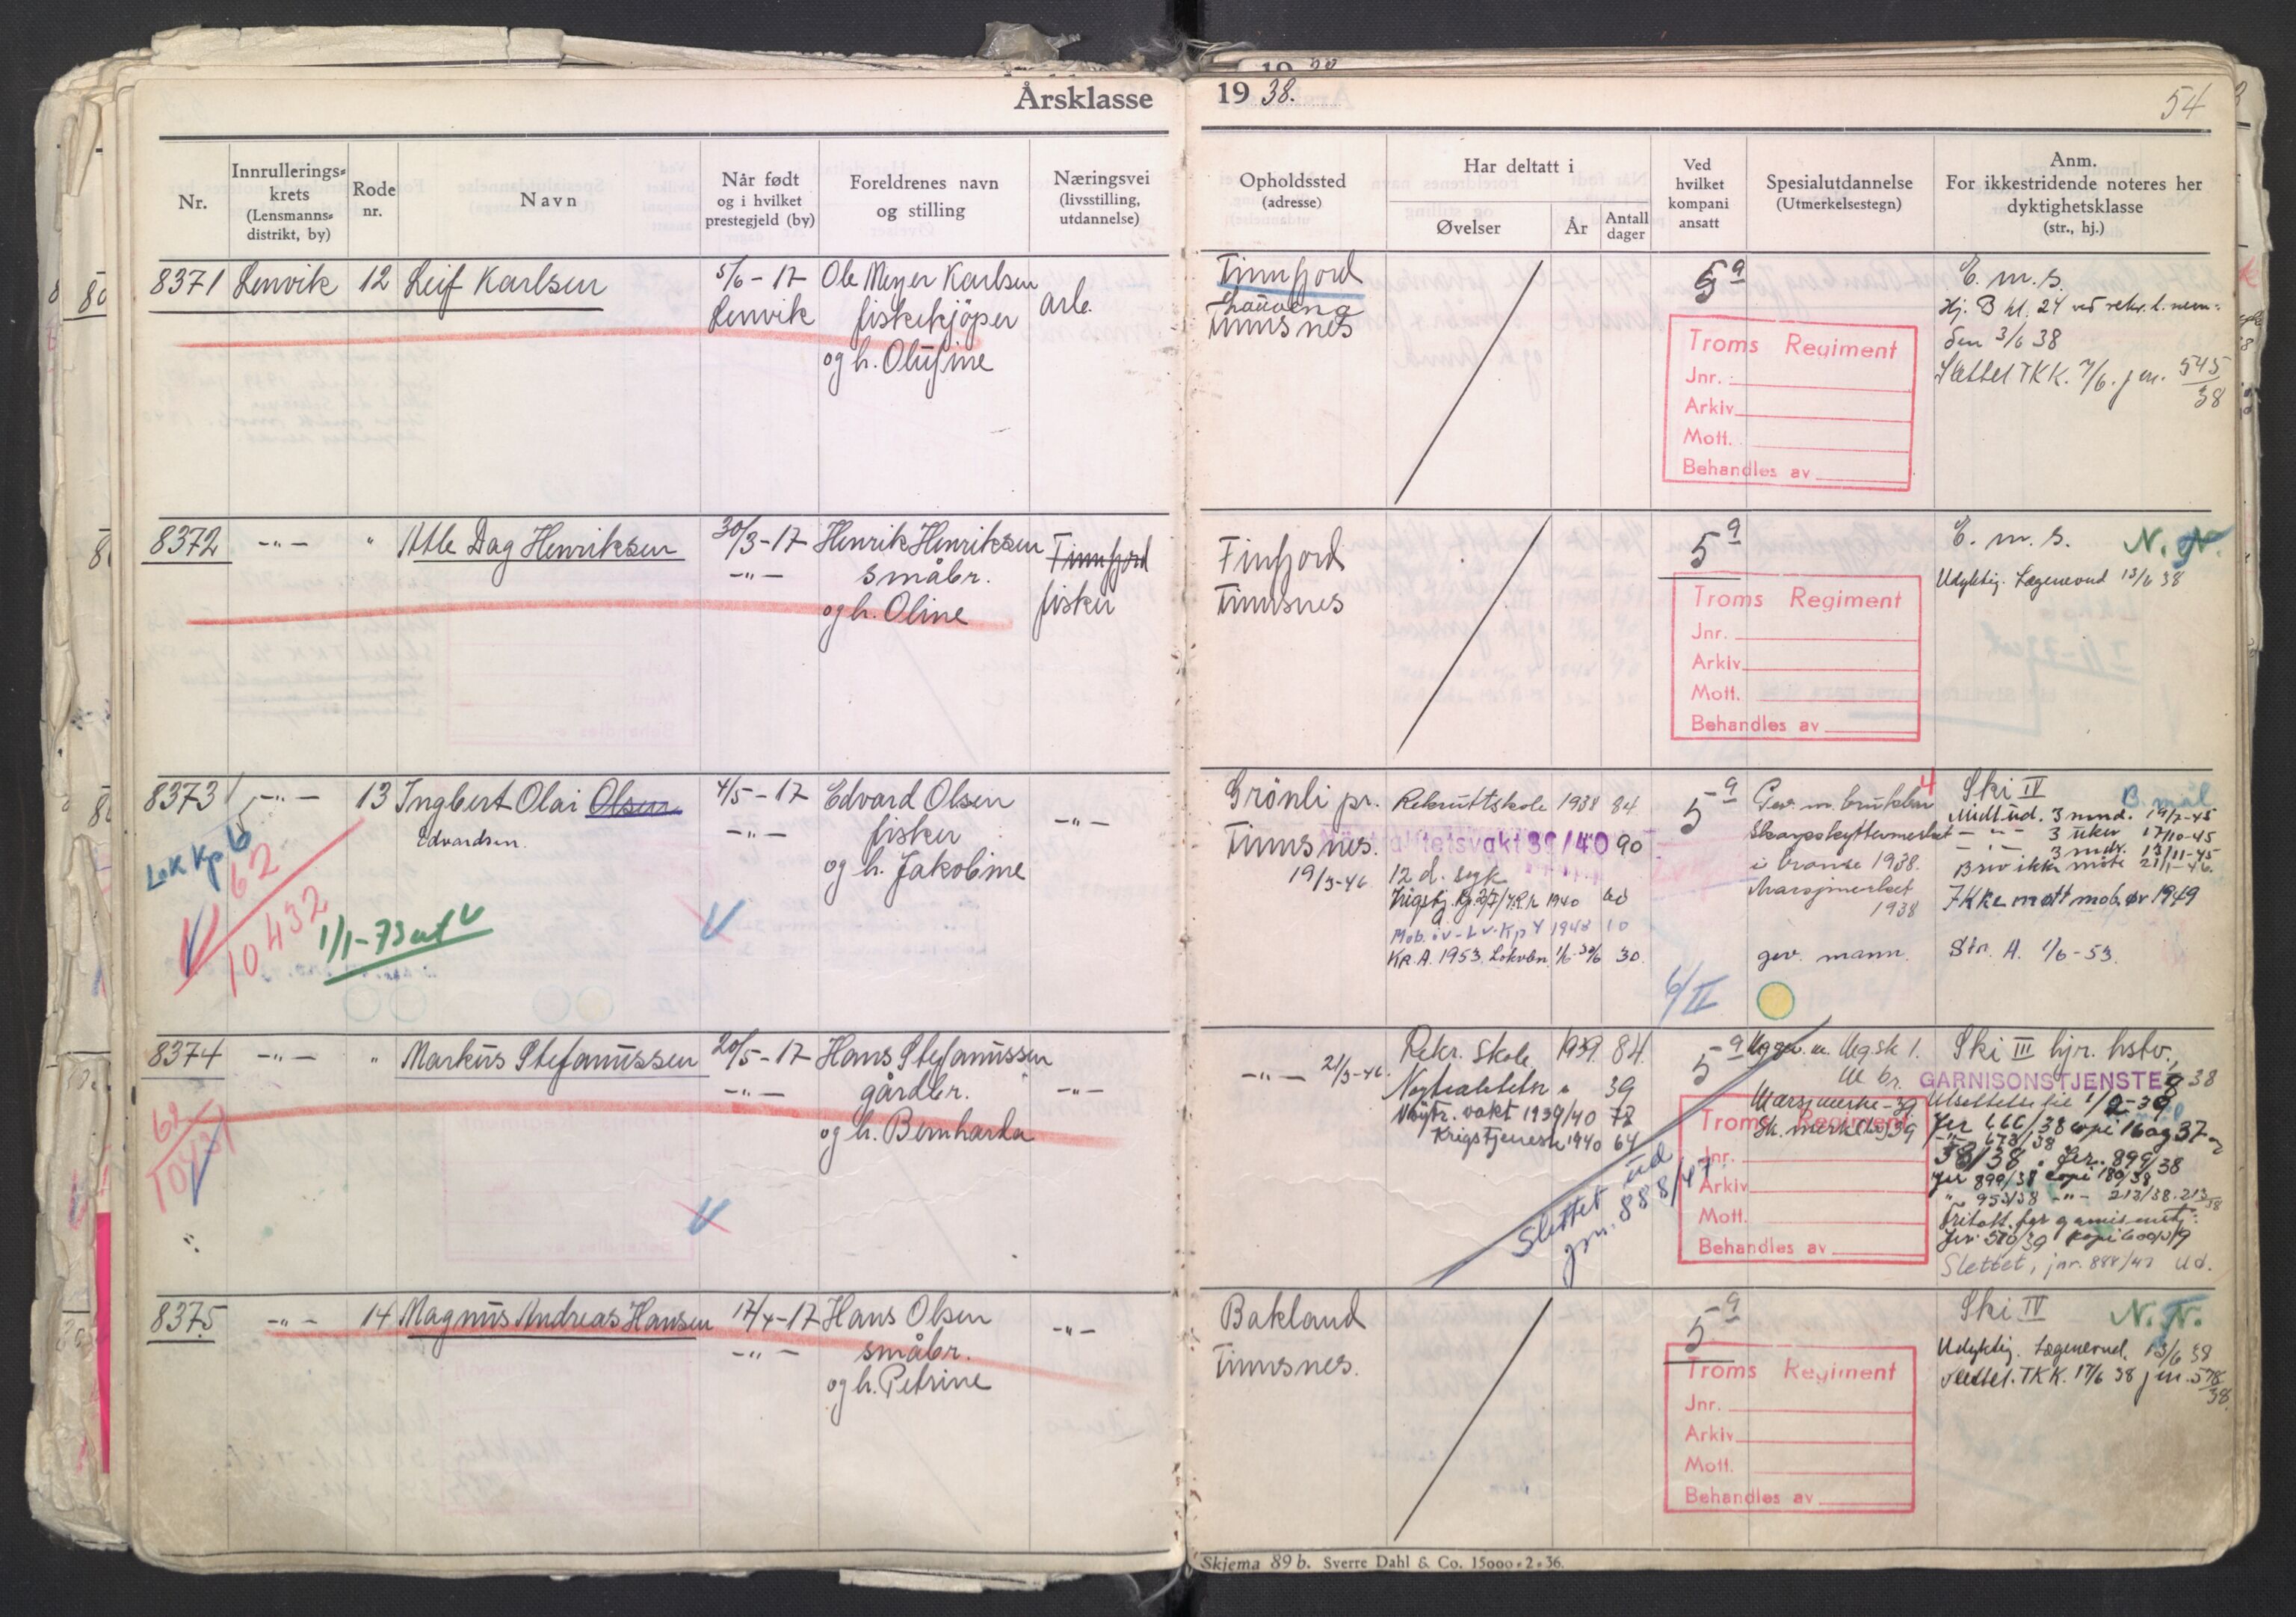 Årsklasse 1938.
54
Nr.
Innrullerings-
krets
(Lensmanns-
distrikt, by)
Rode
nr.
Navn
Når født
og i hvilket
prestegjeld (by)
Foreldrenes navn
og stilling
Næringsvei
(livsstilling,
utdannelse)
Opholdssted
(adresse)
Har deltatt i
Øvelser
År
Antall
dager
Ved
hvilket
kompani
ansatt
Spesialutdannelse
(Utmerkelsestegn)
Anm.
For ikkestridende noteres her
dyktighetsklasse
(str., hj.)
8371 Lenvik 12 Leif Karlsen
5/6-17
Lenvik
Ole Meyer Karlsen
fiskekjöper
og h. Olufine
arb.
Finnfjord
Finnsnes
5a
Troms Regiment
Jnr.
Arkiv
Mott.
Behandles av
E. m. s.
Hj. B kl. 24 ved rekr. l. nem-
den 3/6 38
Slettet TKK. 7/6. jnr. 545/38
8372 -"- " Atle Dag Henriksen
30/3-17
-"-
Henrik Henriksen
småbr.
og h. Oline
Finnfjord
fisker
Finfjord
Finnsnes
5a
Troms Regiment
Jnr.
Arkiv
Mott.
Behandles av
E. m. s. N. N.
Udyktig. Lægenevnd 13/6 38
8373 -"- 13 Ingbert Olai Olsen
Edvardsen.
Lok Kp 6
62
10432
1/1-73 ut
4/5-17
-"-
Edvard Olsen
fisker
og h. Jakobine
-"-
Grönli pr.
Finnsnes.
19/3-46
Rekruttskole 1938 84
Nøytralitetsvakt 39/40 90
12 d. syk
Mob. öv- Lv. Kp 4 1948 10
KP. A. 1953. Lokvbn. 1/6-30/6 30.
5a
6/II
4
Gev. m. brukbar
Skarpskyttermerket
i bronse 1938.
Marsjmerket
1938
gev. mann.
Ski IV
B. mål
Midl. ud. 3 mnd. 19/7-45
-"- 3 uker 17/10-45
-"- 3 mdr. 13/11-45
Brev ikke möte 21/1-46.
Ikke møtt mob. øv 1949
Str. A. 1/6-53.
8374 -"- " Markus Stefanussen
62
10431
20/5-17
-"-
Hans Stefanussen
gårdbr.
og h. Bernharda
-"-
-"- 21/3-46.
Rekr. skole 1939. 84.
39
Nøytr. vakt 1939/40 78
Krigstjeneste 1940 64
Slettet ud
jnr. 888/47
5a
Marsjmerke -39
Sk. merke 39
Troms Regiment
Jnr.
Arkiv
Mott.
Behandles av
Ski III hjr. hstv.
GARNISONSTJENESTE 38
Utsettelse til 1/2-39
Jnr 666/38 copi 16 og 37
-"- 673/38
38/38. Jnr. 899/38
Jnr 899/38 copi 180/38
" 953/38 -"- 213/38. 213/38
Jnr 570/39
Slettet, jnr. 888/47 ud.
8375 -"- 14 Magnus Andreas Hansen
17/4-17
-"-
Hans Olsen
småbr.
og h. Petrine
-"-
Bakland
Finnsnes.
5a
Troms Regiment
Jnr.
Arkiv
Mott.
Behandles av
Ski IV N. N.
Udyktig. Lægenevnd. 13/6 38
Slettet. TKK. 17/6 38 jnr. 578/38.
Skjema 89 b. Sverre Dahl & Co. 15000-2-36.